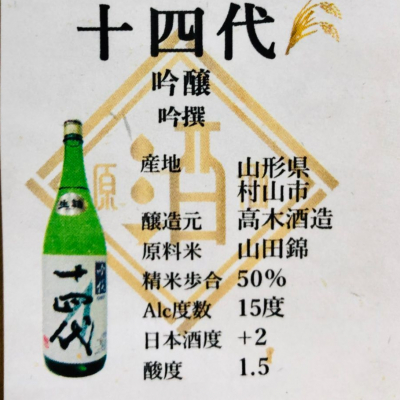 十四代
吟醸
吟撰
酒
原
産地 山形県
村山市
醸造元 高木酒造
原料米 山田錦
精米歩合 50%
Alc度数 15度
日本酒度 +2
酸度 1.5
生詰
吟撰
十四代